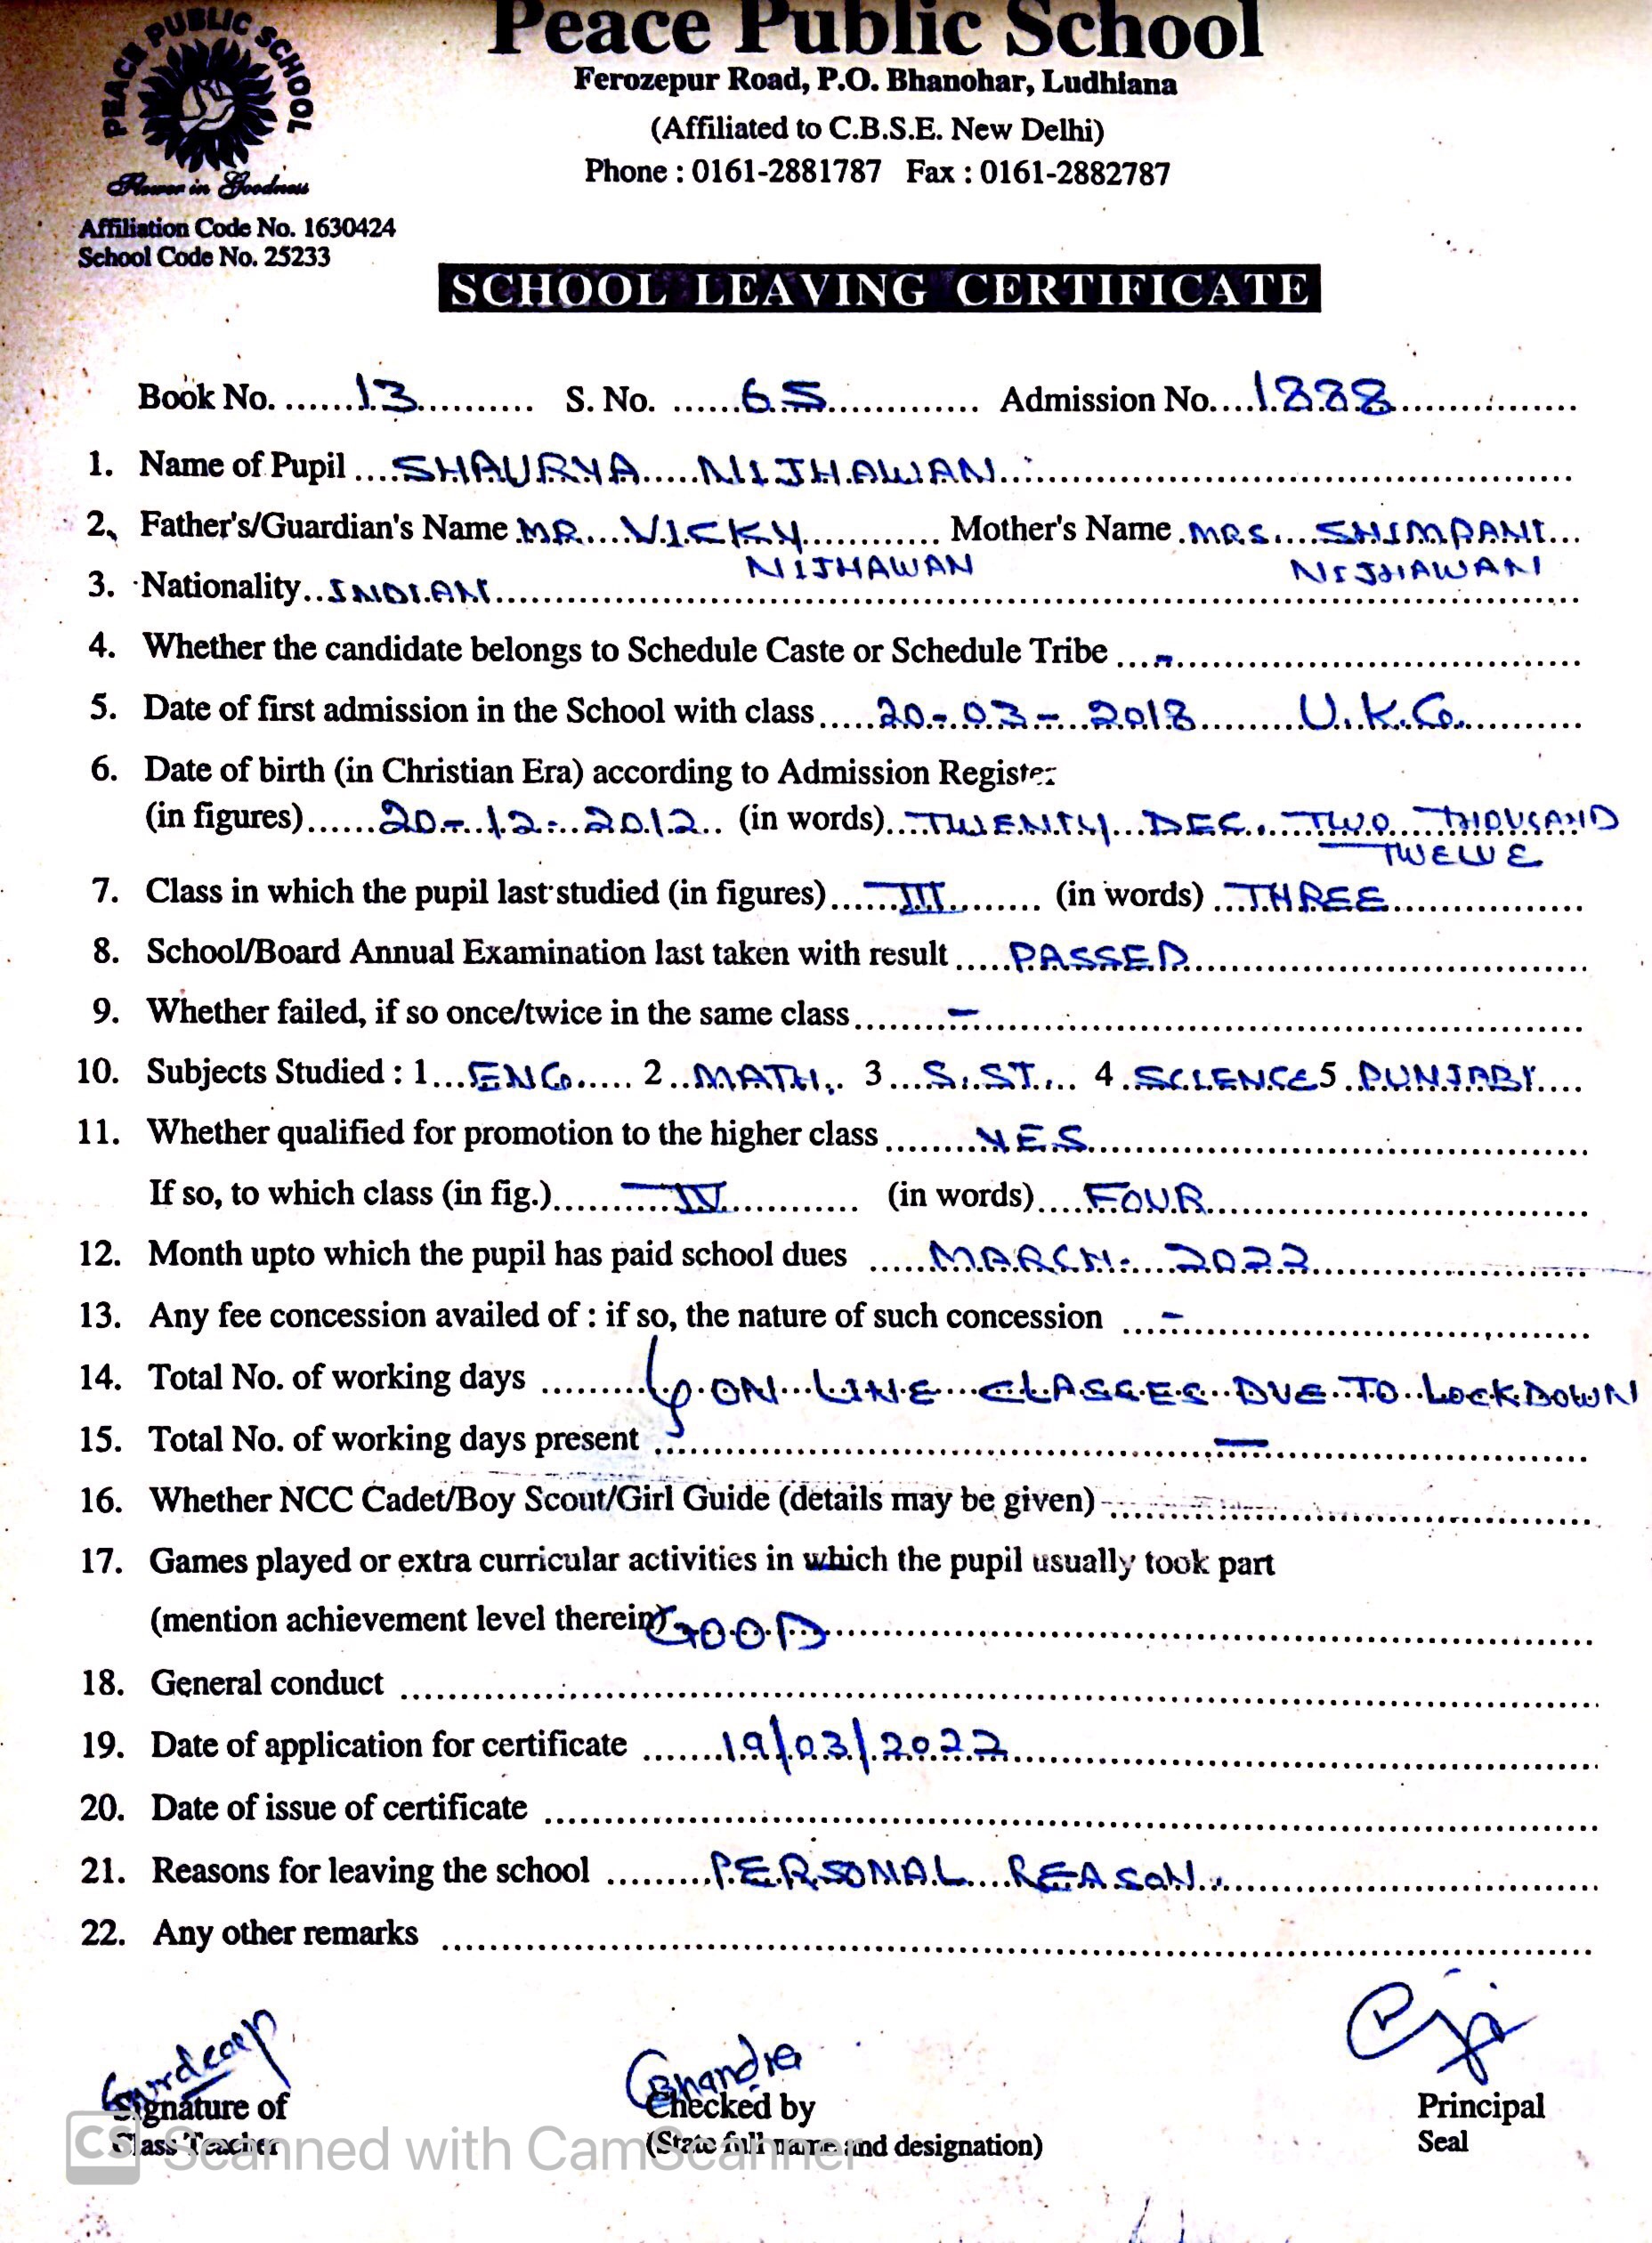 PEACE PUBLIC SCHOOL
Flower in Goodness
Peace Public School
Ferozepur Road, P.O. Bhanohar, Ludhiana
(Affiliated to C.B.S.E. New Delhi)
Phone : 0161-2881787 Fax : 0161-2882787
Affiliation Code No. 1630424
School Code No. 25233
SCHOOL LEAVING CERTIFICATE
Book No. .......13........... S. No. ......65............. Admission No....1888..................
1. Name of Pupil ....SHAURYA.....NIJHAWAN..............................
2. Father's/Guardian's Name MR...VICKY............ Mother's Name .MRS....SHIMPANI...
NIJHAWAN NIJHAWAN
3. Nationality..INDIAN..............................
4. Whether the candidate belongs to Schedule Caste or Schedule Tribe ....-..............................
5. Date of first admission in the School with class.....20-03-2018.........U.K.G...........
6. Date of birth (in Christian Era) according to Admission Register
(in figures)......20-12-2012.. (in words)..TWENTY...DEC...TWO...THOUSAND
TWELVE
7. Class in which the pupil last studied (in figures)......III........ (in words) ..THREE..................
8. School/Board Annual Examination last taken with result .....PASSED..............................
9. Whether failed, if so once/twice in the same class........-..............................
10. Subjects Studied : 1...ENG...... 2..MATH.. 3...S.ST.... 4.SCIENCE 5.PUNJABI....
11. Whether qualified for promotion to the higher class ........YES..............................
If so, to which class (in fig.)..........IV............ (in words)....FOUR..............................
12. Month upto which the pupil has paid school dues .....MARCH-...2022..............................
13. Any fee concession availed of : if so, the nature of such concession ...-..............................
14. Total No. of working days .........ON LINE CLASSES DUE TO LOCKDOWN
15. Total No. of working days present ..............................-..............................
16. Whether NCC Cadet/Boy Scout/Girl Guide (details may be given) ..............................
17. Games played or extra curricular activities in which the pupil usually took part
(mention achievement level therein) GOOD..............................
18. General conduct ..............................
19. Date of application for certificate .......19/03/2022..............................
20. Date of issue of certificate ..............................
21. Reasons for leaving the school .........PERSONAL....REASON..............................
22. Any other remarks ..............................
Gurdeep Chandra
Signature of Checked by Principal
Class Teacher (State full name and designation) Seal
CS Scanned with CamScanner